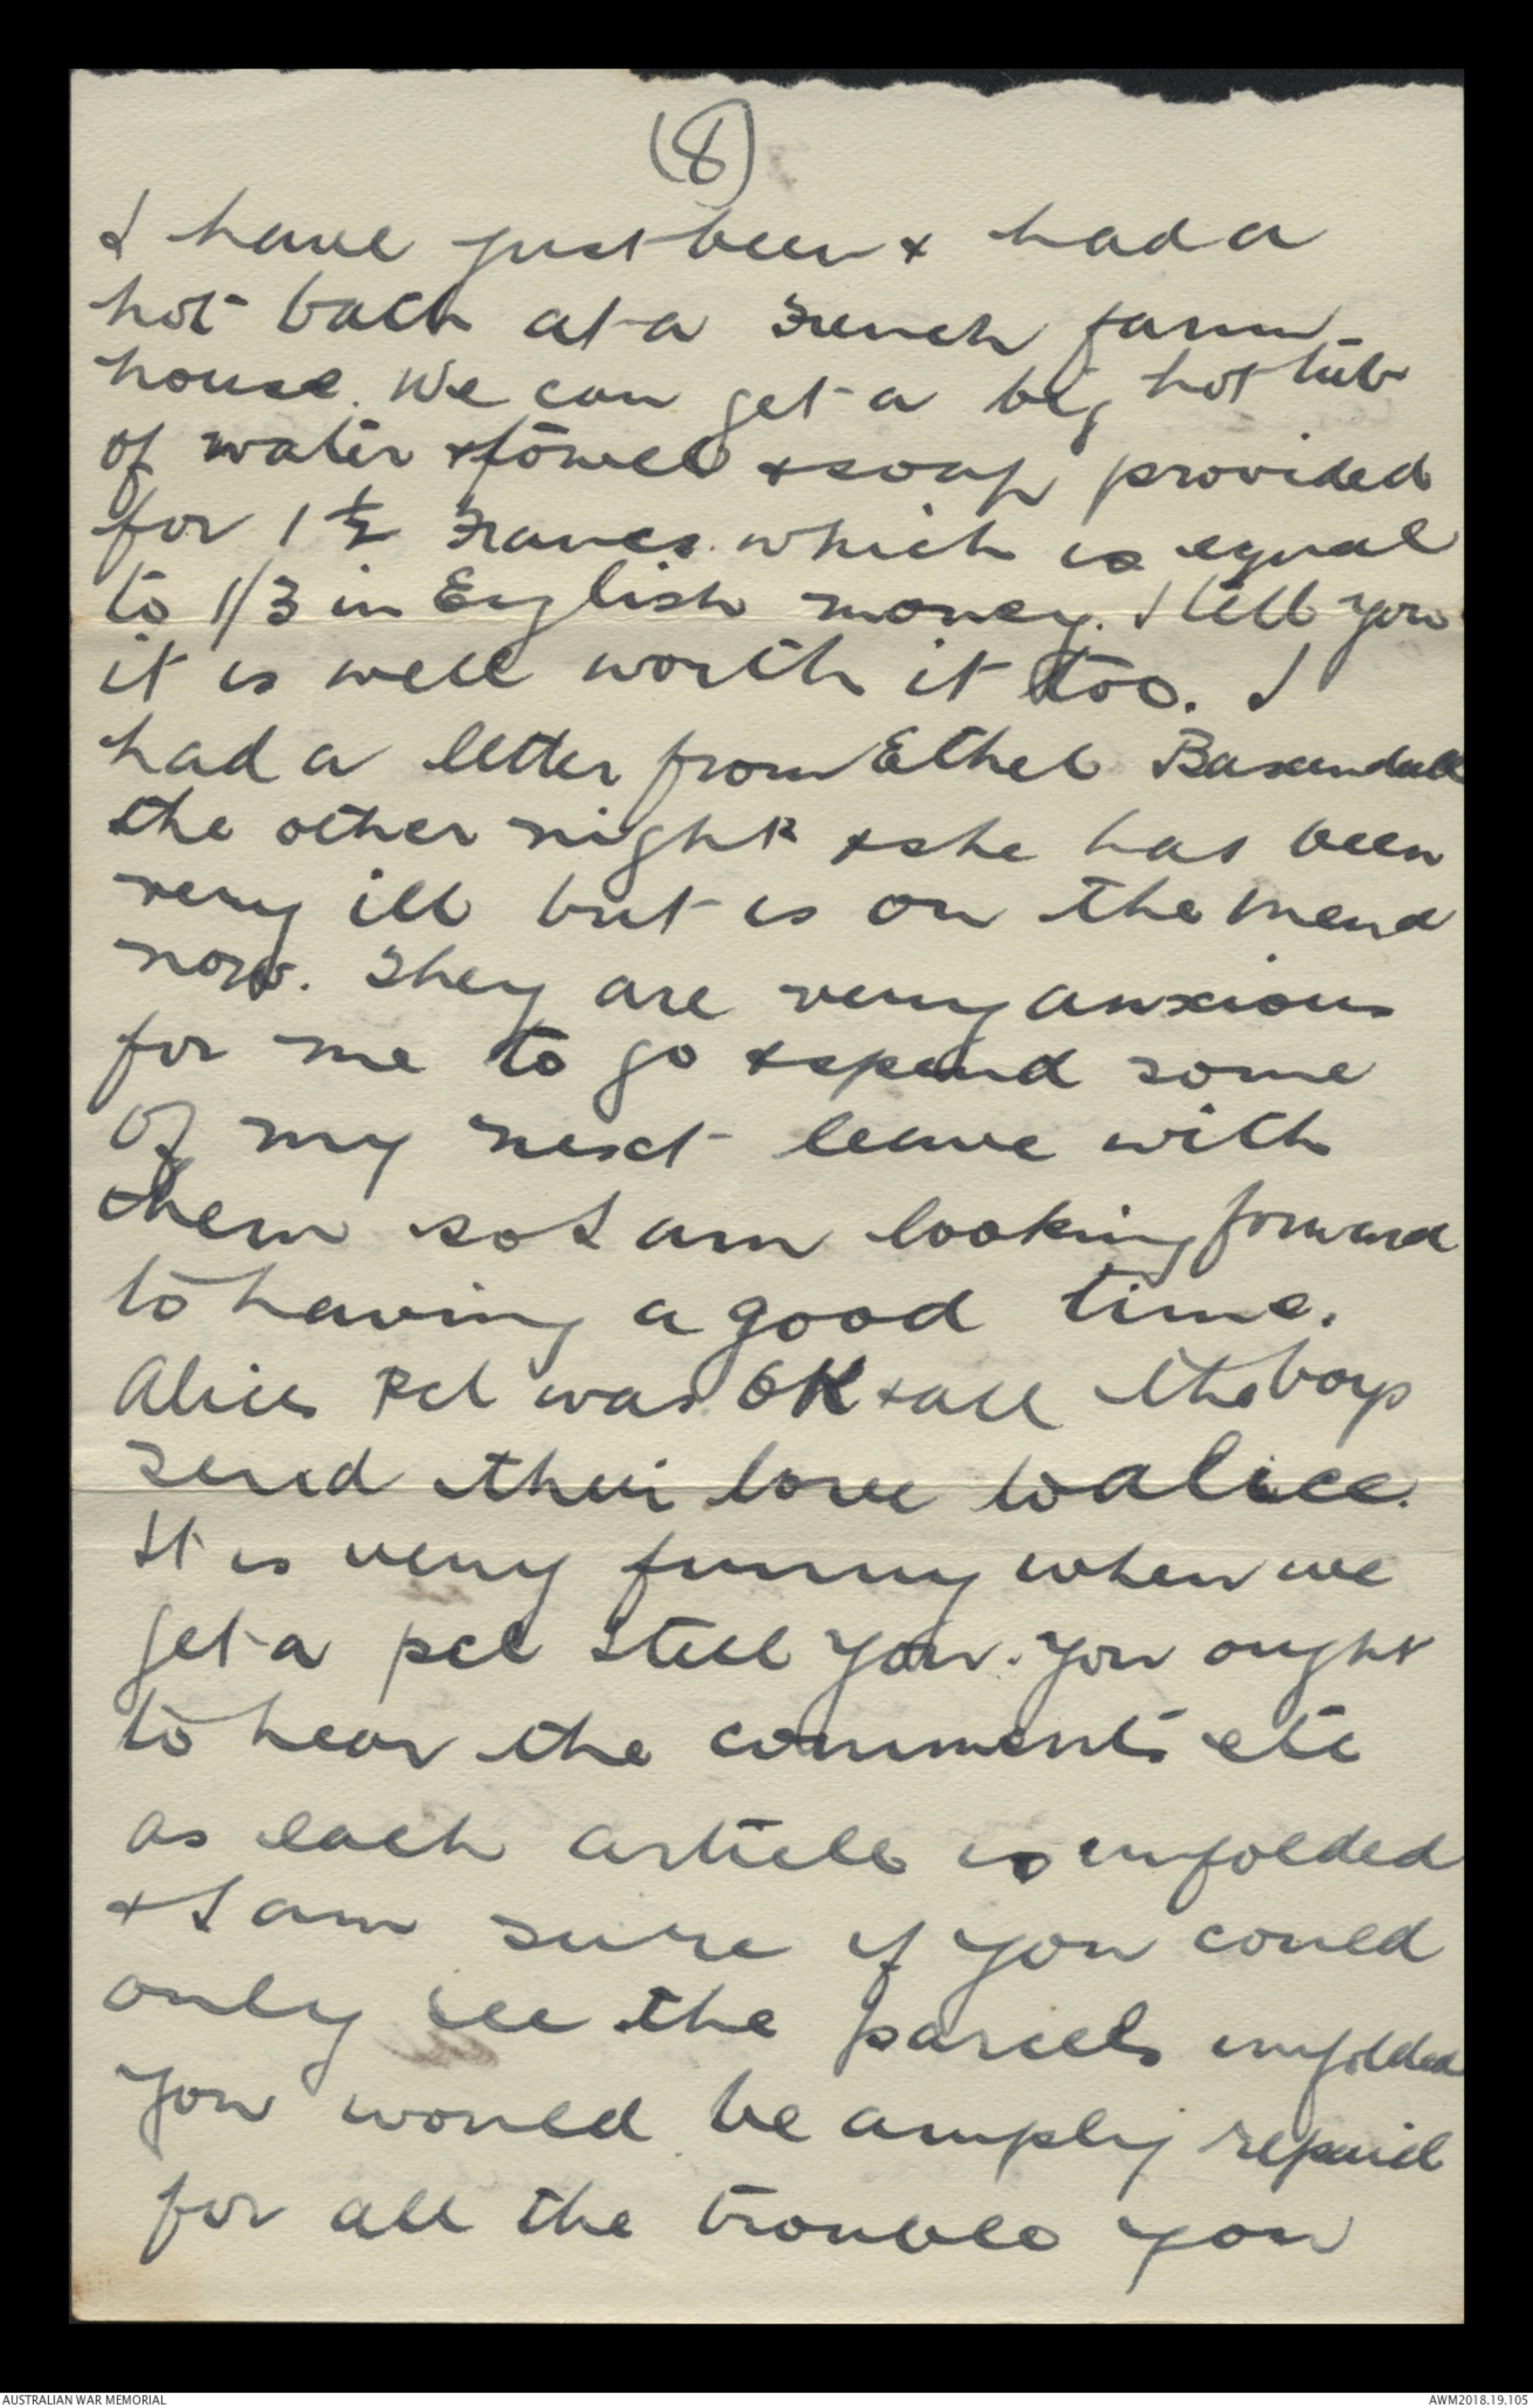 (8)
I have just been & had a
hot bath at a French farm
house. We can get a big hot tub
of water & towel & soap provided
for 1 ½ Francs which is equal
to 1/3 in English money. I tell you
it is well worth it too. I
had a letter from Ethel Baxendall
the other night & she has been
very ill but is on the mend
now. They are very anxious
for me to go & spend some
of my next leave with
them so I am looking forward
to having a good time.
Alices Pcl was OK & all the boys
send their love to Alice.
It is very funny when we
get a pcl I tell you. You ought
to hear the comments etc
as each article is unfolded
& I am sure if you could
only see the parcels unfolded
you would be amply repaid
for all the trouble you
AUSTRALIAN WAR MEMORIAL
AWM2018.19.105